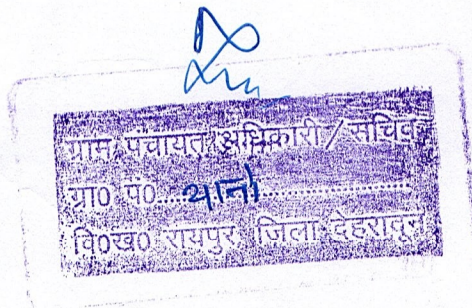 ग्राम पंचायत अधिकारी / सचिव
ग्रा0 पं0.....थानो.....
वि0ख0 रायपुर जिला देहरादून